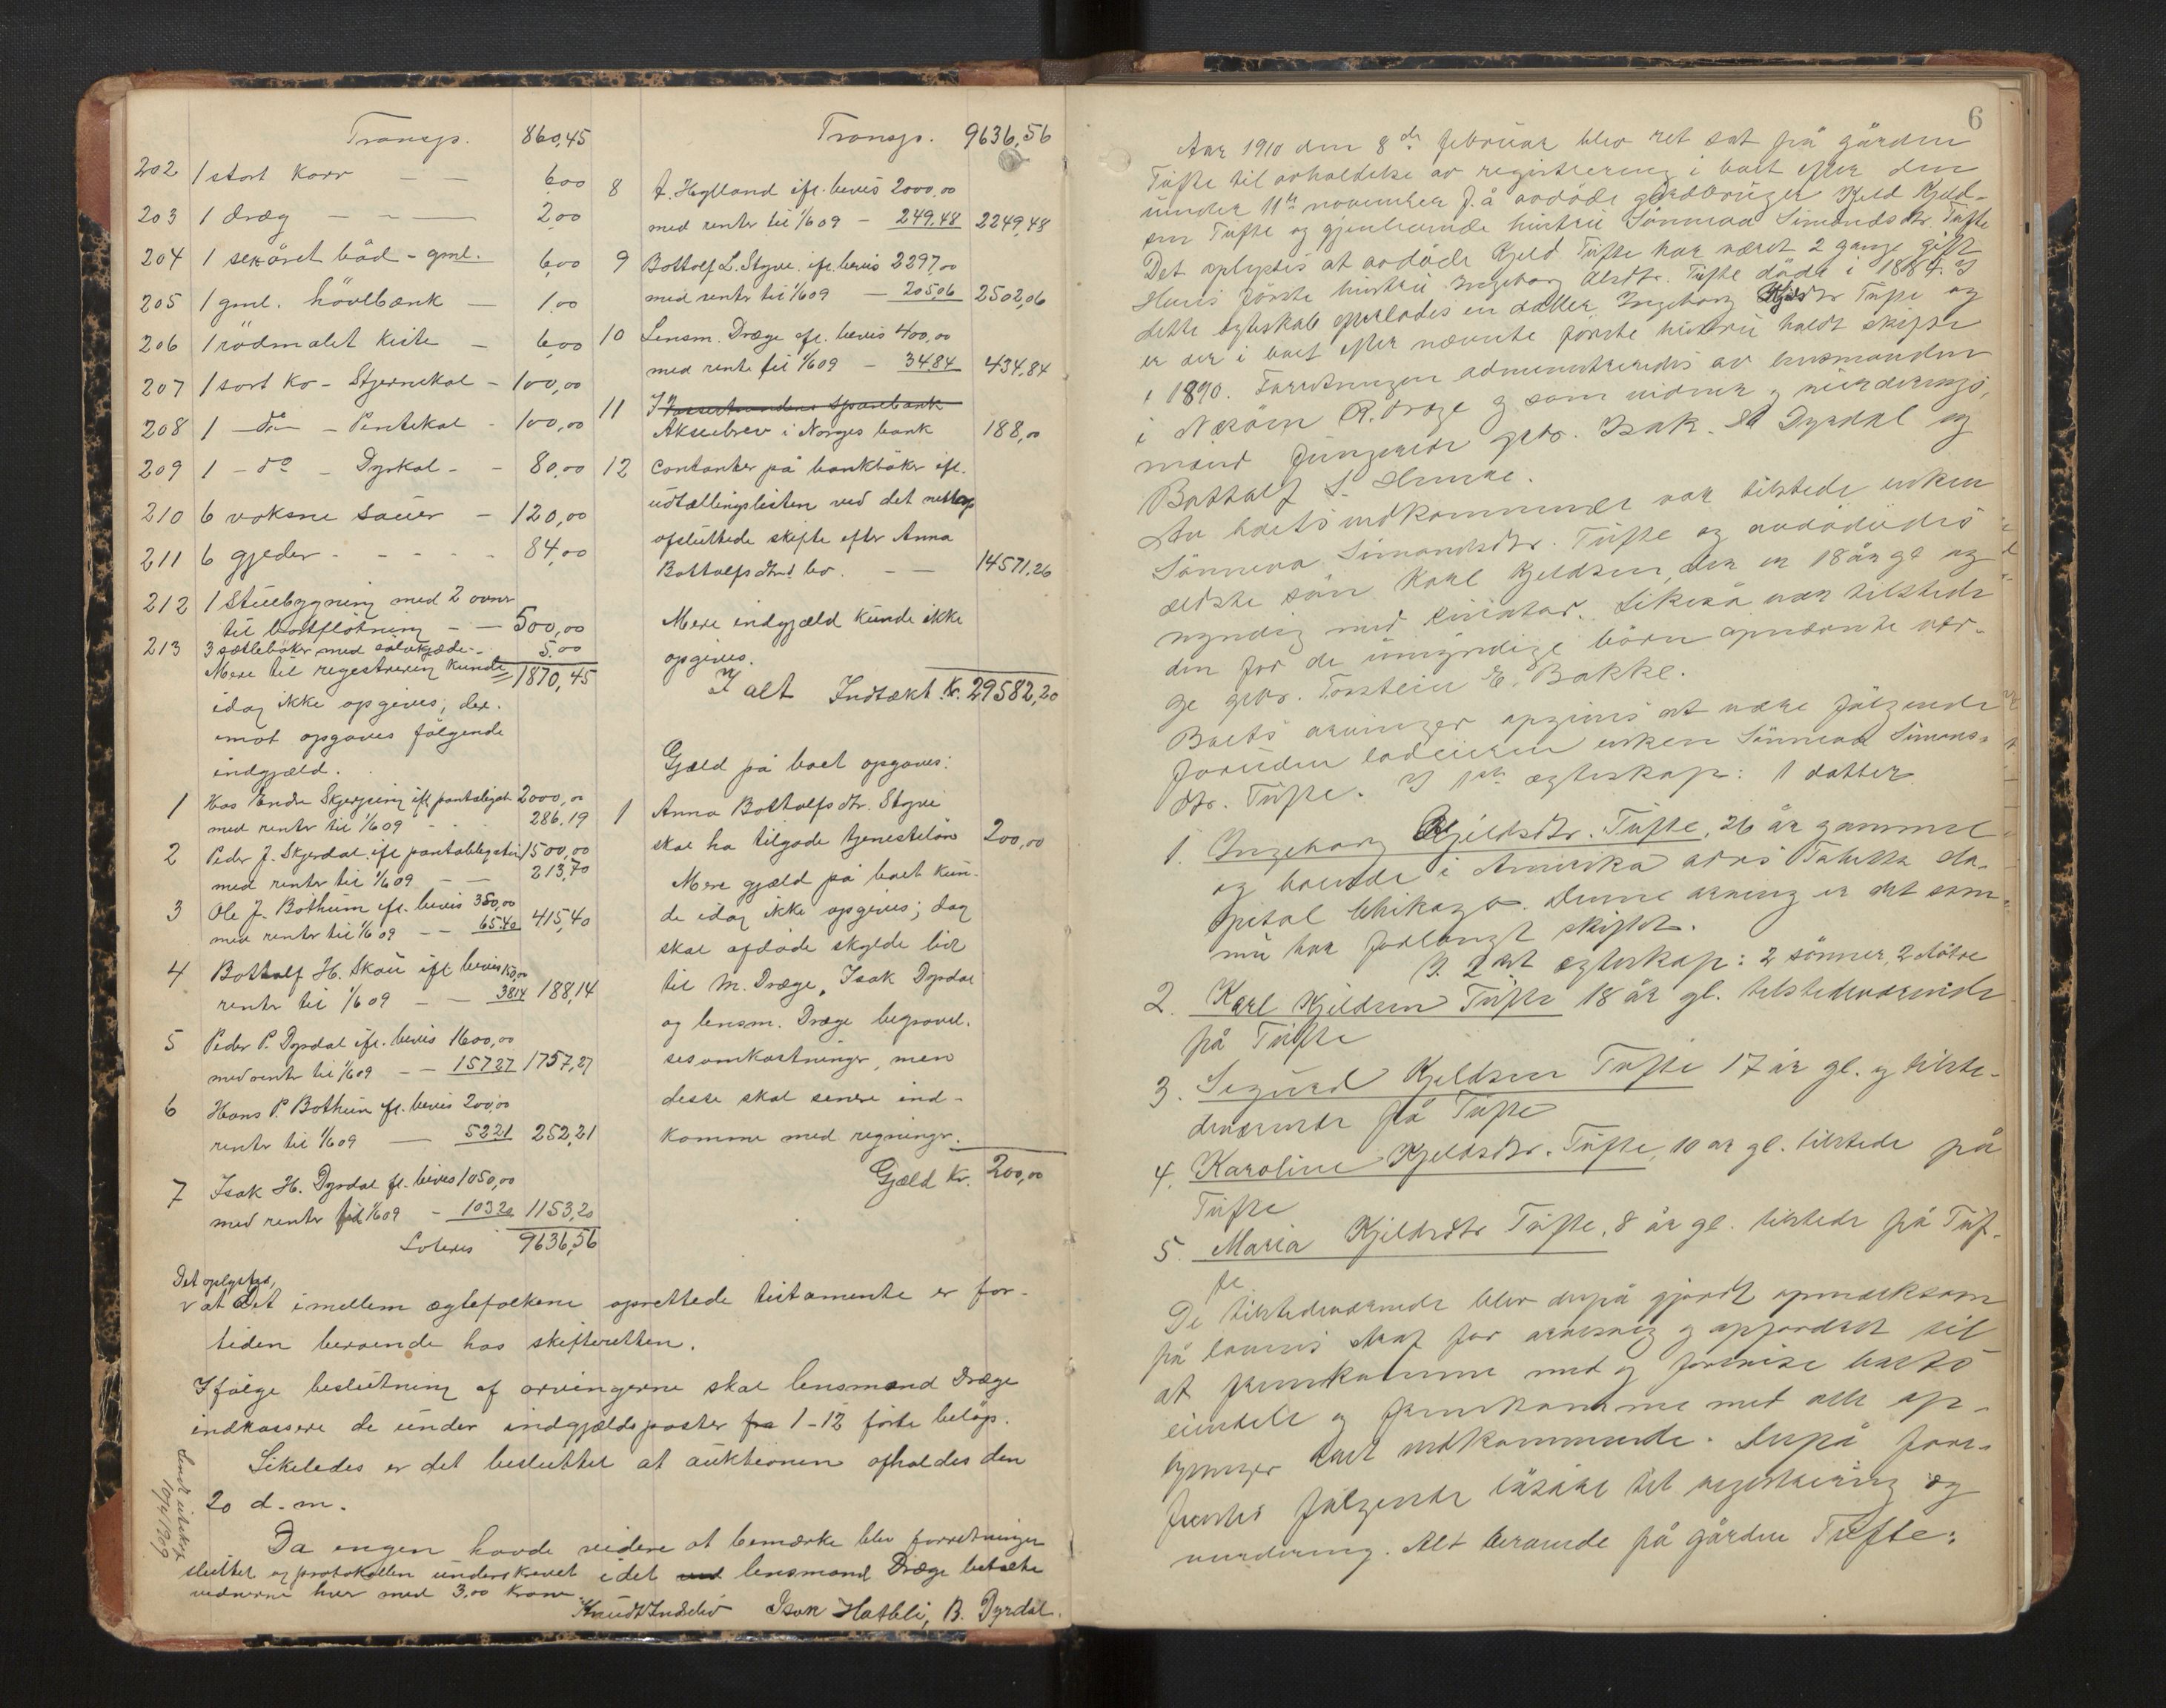 Transp. 860,45
202 1 stort Karr — — 6,00
203 1 dræg — — — 2,00
204 1 sexåret båd - gml. 6,00
205 1 gml. hövlbænk — 1,00
206 1 rödmalet Kiste — 6,00
207 1 sort Ko - Stjernekol - 100,00
208 1 — do — - Pentekol - 100,00
209 1 - do - Dyrkol - - 80,00
210 6 voksne sauer - 120,00
211 6 gjeder - - - - - 84,00
212 1 Stuebygning med 2 ovner
til bortflötning - — 500,00
213 3 sætlebøker med sølvkjæde - 5,00
Mere til registrering kunde 1870,45
idag ikke opgives, der-
imot opgaves følgende
indgjæld.
1 Hos Endre Skjerping ifl pantobligat 2000,00
med renter til 1/6 09 - - 286,19
2 Peder J. Skjerdal ifl pantobligation 1500,00
med renter til 1/6 09 — — 213,70
3 Ole J. Bothum ifl. bevis 350,00
med renter til 1/6 09 - - 65,40 415,40
4 Bottolf H. Skau ifl bevis 150,00
renter til 1/6 09 - - 38,14 188,14
5 Peder P. Dyrdal ifl. bevis 1600,00
med renter til 1/6 09 - - 157,27 1757,27
6 Hans P. Bothun ifl. bevis 200,00
renter til 1/6 09 — 52,21 252,21
7 Isak H. Dyrdal ifl. bevis 1050,00
med renter til 1/6 09 - 103,20 1153,20
Lateris 9636,56
Transp. 9636,56
8 A. Hylland ifl. bevis 2000,00
med renter til 1/6 09 - 249,48 2249,48
9 Bottolf L. Stgve. ifl. bevis 2297,00
med renter til 1/6 09 - 205,06 2502,06
10 Lensm. Dræge ifl. bevis 400,00
med rente til 1/6 09 - 34,84 434,84
11 I sparebank
Aksiebrev i Norges bank 188,00
12 Contanter på bankbøker ifl.
udtællingslisten ved det netop
afsluttede skifte efter Anna
Bottolfsdtrs bo. — — 14571,26
Mere indgjæld kunde ikke
opgives.
I alt Indtækt Kr. 29582,20
Gjæld på boet opgaves:
1 Anna Bottolfsdtr. Stgve
skal ha tilgode tjenesteløn 200,00
Mere gjæld på boet kun-
de idag ikke opgives; dog
skal afdøde skylde lidt
til M. Dræge, Isak Dyrdal
og lensm. Dræge begravel-
sesomkostninger, men
desse skal senere ind-
komme med regninger.
Gjæld Kr. 200,00
Det oplystes,
at Det imellem ægtefolkene oprettede testamente er for-
tiden beroende hos skifteretten.
Ifølge beslutning af arvingerne skal lensmand Dræge
indkassere de under indgjældsposter fra 1-12 førte beløp.
Likeledes er det besluttet at auktionen afholdes den
20 d.m.
Da ingen havde videre at bemærke blev forretningen
sluttet og protokollen underskrevet idet lensmand Dræge betalte
vidnerne hver med 3,00 kroner.
Isak Hatleli, B. Dyrdal.
Sendt utskr.
10/4 1909
6
Aar 1910 den 8de februar blev ret sat på gården
Tufte til avholdelse av registrering i boet efter den
under 11te november f.å avdøde gårdbruger Kjeld Kjeld-
sen Tufte og gjenlevende hustru Sönneva Simondsdtr. Tufte
Det oplystes at avdöde Kjeld Tufte har været 2 gange gift
Hans förste hustru Ingeborg Olsdtr. Tufte döde i 1884. I
dette egteskab efterlodes en datter Ingeborg Kjeldsdtr Tufte og
er der i boet efter nævnte første hustru holdt skifte
i 1890. Forretningen administreredes av lensmanden
i Næröen R. Dræge og som vidner og vurderings-
mænd fungerede gbr. Isak Dyrdal og
Bottolf S.
Av boets vedkommende var tilstede enken
Sönneva Simondsdtr. Tufte og avdödedes
ældste sön Karl Kjeldsen, der er 18 år gl og
myndig med kurator. Likeså var tilstede
den for de umyndige börn opnævnte vær-
ge gbr. Torstein E. Bakke.
Boets arvinger opgives at være fölgende
foruden lodeieren enken Sönneva Simons-
dtr. Tufte. I 1ste egteskap: 1 datter
1. Ingeborg Kjeldsdtr. Tufte, 26 år gammel
og boende i Amerika adrs Tabitta Ho-
spital Chikago. Denne arving er det som
nu har forlangt skiftet.
I 2det egteskap: 2 sönner, 2 dötre
2. Karl Kjeldsen Tufte 18 år gl. tilstedeværende
på Tufte
3. Sigurd Kjeldsen Tufte 17 år gl. og tilste-
deværende på Tufte
4. Karoline Kjeldsdtr. Tufte, 10 år gl. tilstede på
Tufte
5. Maria Kjeldsdtr Tufte, 8 år gl. tilstede på Tuf-
te
De tilstedeværende blev derpå gjordt opmerksom
på lovens straf for og opfordret til
at fremkomme med og forevise boets
eiendele og fremkomme med alle op-
lysninger boet vedkommende. Derpå fore-
fandtes fölgende lösöre til registrering og
vurdering. Alt beroende på gården Tufte: